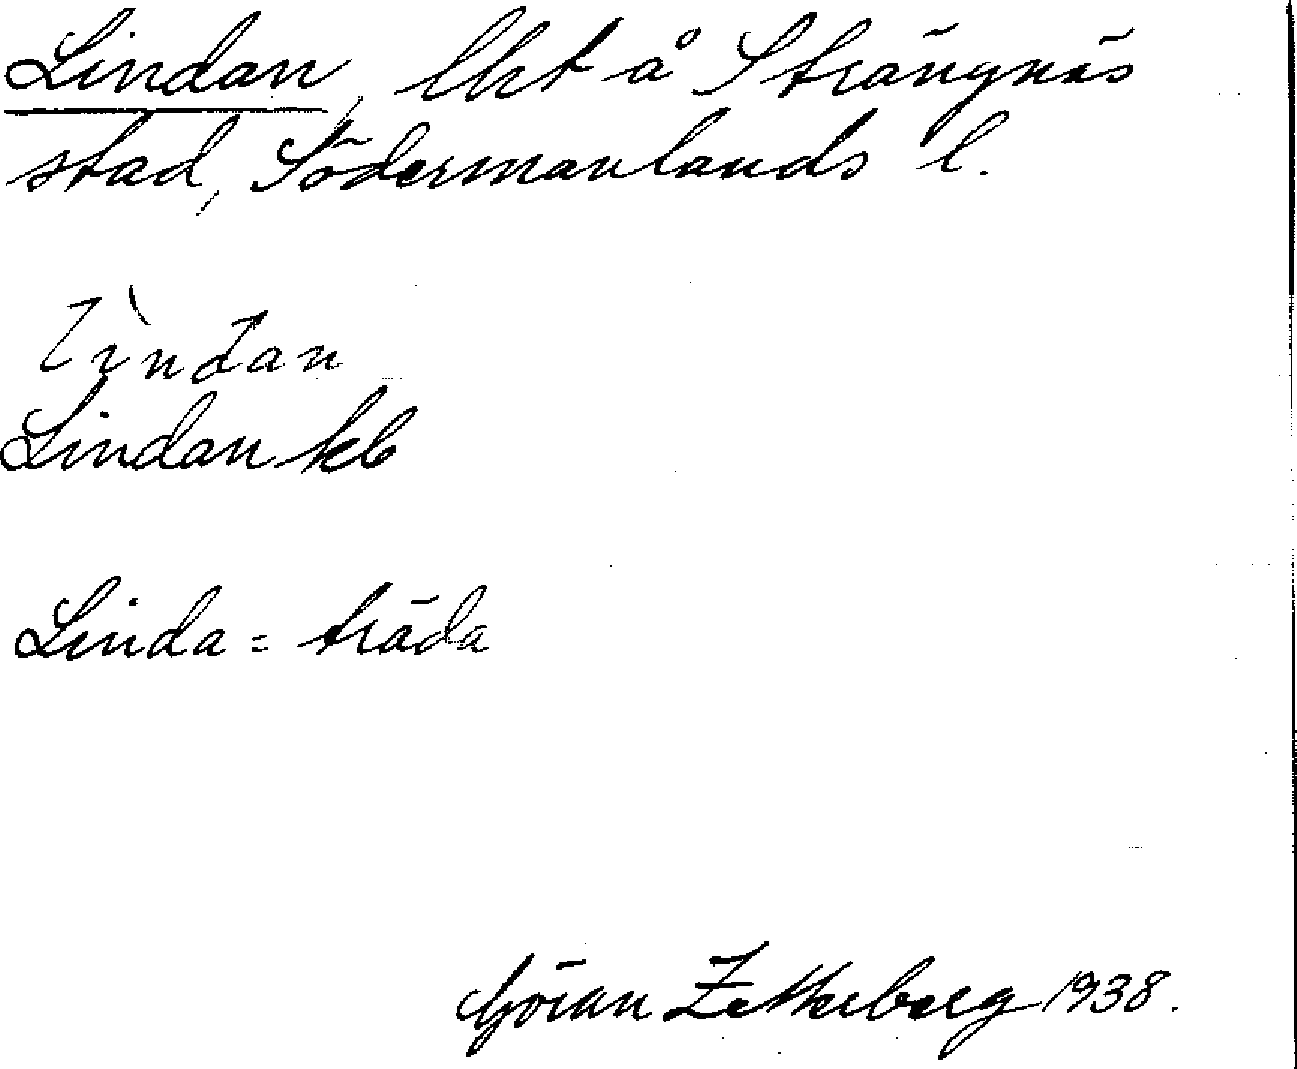 Lindan, lht å Strängnäs
stad, Södermanlands l.
lìndan
Lindan kb
Linda = träda
Göran Zetterberg 1938.